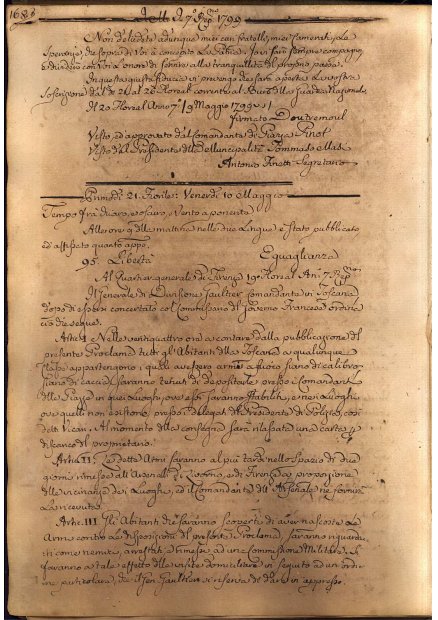 1683
Non deludete adunque miei cari fratelli, miei Camerati, le
speranze, che sopra di Voi à concepito La Patria. Io vi sarò sempre compagno,
e dividerò con Voi L'onore di servire alla tranquillità del proprio paese.
In questa giusta fiducia vi prevengo che sarà aperta La vostra
soscrizione dal dì 21 al 26 Floreal corrente al Burò della Guardia Nazionale
Il 20 Floreal Anno 7º 9 Maggio 1799 v.s.
Firmato Doutremoul
Visto, ed approvato dal Comandante di Piazza Pinot
Visto Il Presidente della Municipalità Tommaso
Antonio Segretario
Primodì 21. Fiorile: Venerdì 10 Maggio
Tempo frà chiaro, e oscuro, vento a ponente
Alle ore 9 della mattina nelle due Lingue è stato pubblicato
ed affissato quanto app.
95. Libertà Eguaglianza
Al Quartier generale di Firenze 19 Floreal An. 7. Rep.
Il Generale di Divisione Gaultier comandante in Toscana
dopo di essersi concertato col Commissario del Governo Francese ordina
ciò che segue.
Artic. I Nelle ventiquattro ore a contare dalla pubblicazione del
presente Proclama tutti gl'Abitanti della Toscana a qualunque
classe appartenghino, i quali avessero armi a fuoco siano di calibro
siano di caccia, saranno tenuti di depositarle presso i Comandanti
delle Piazze in quei Luoghi, ove essi saranno stabiliti, e nei Luoghi,
ove questi non esistono, presso i Delegati del Presidente di Polizia, così
detti Vicari. Al momento della consegna sarà rilasciata una carta
di scarico al proprietario.
Artic. II. Le dette Armi saranno al più tardi nello spazio di due
giorni rimesse agli Arsenali di Livorno, e di Firenze a proporzione
della vicinanza dei Luoghi, ed il Comandante dell'Arsenale ne fornirà
La ricevuta.
Artic. III. Gli Abitanti che saranno scoperti di aver nascoste Le
Armi contro Le disposizioni del presente Proclama, saranno riguardati
come nemici, arrestati, e rimessi ad una Commissione Militare. Si
faranno a tale effetto delle visite domiciliari in seguito ad un ordine
particolare, che il Gen. Gaultier si riserva di dare in appresso.